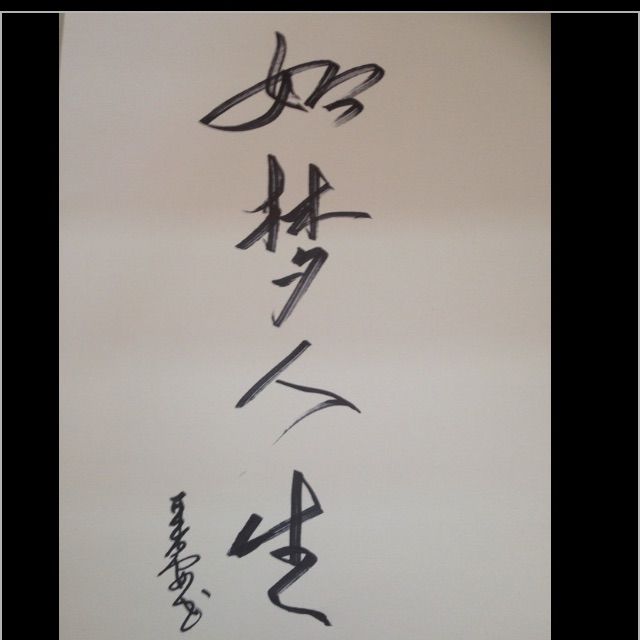 如梦人生